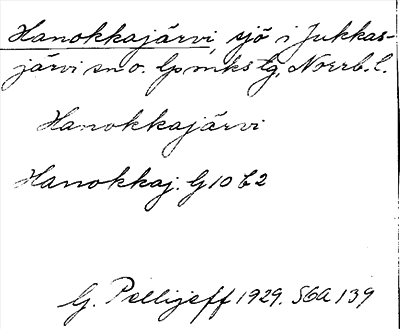 Hanokkajärvi, sjö i Jukkas-
järvi sn o. Gpmkstg, Norrb. l.
Hanokkajärvi
Hanokkaj. G10 C2
G. Pellijeff 1929. SGA 139